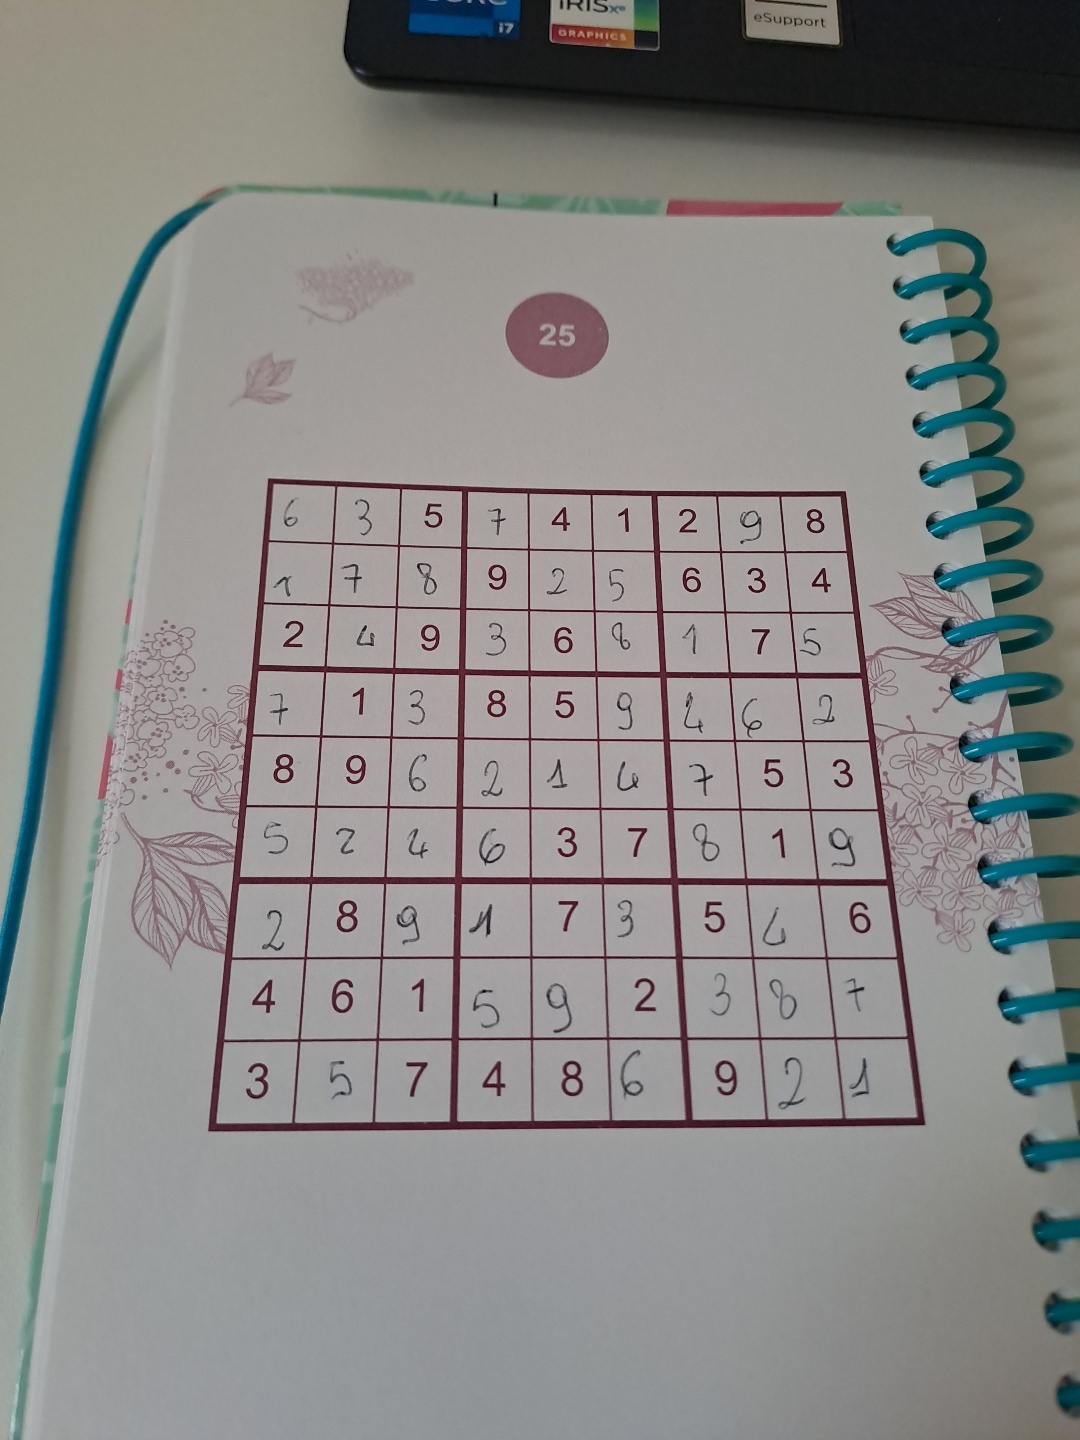 CORE
i7
iRIS xe
GRAPHICS
eSupport
25
6 3 5 7 4 1 2 9 8
1 7 8 9 2 5 6 3 4
2 4 9 3 6 8 1 7 5
7 1 3 8 5 9 4 6 2
8 9 6 2 1 4 7 5 3
5 2 4 6 3 7 8 1 9
2 8 9 1 7 3 5 4 6
4 6 1 5 9 2 3 8 7
3 5 7 4 8 6 9 2 1